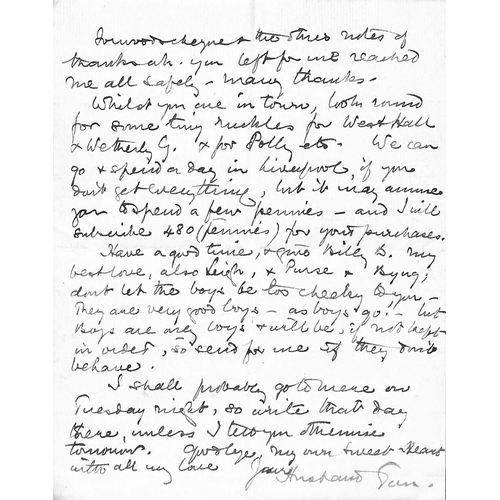 cheque & the three notes of
thanks wh. you left for me reached
me all safely – many thanks.
Whilst you are in town, look round
for some tiny for West Hall
& Wetherly G. & for Polly etc. We can
go & spend a day in Liverpool, if you
don't get everything, but it may amuse
you to spend a few pennies – and I will
subscribe 480 (pennies) for your purchases.
Have a good time, & give Billy B. my
best love, also Leigh, & Purse & Byng;
don't let the boys be too cheeky to you, –
They are very good boys – as boys go. – but
Boys are only boys & will be, if not kept
in order, so send for me if they don't
behave.
I shall probably go to on
Tuesday night, so write that day
there, unless I tell you otherwise
tomorrow. Goodbye, my own Sweet Heart
with all my love Your Husband